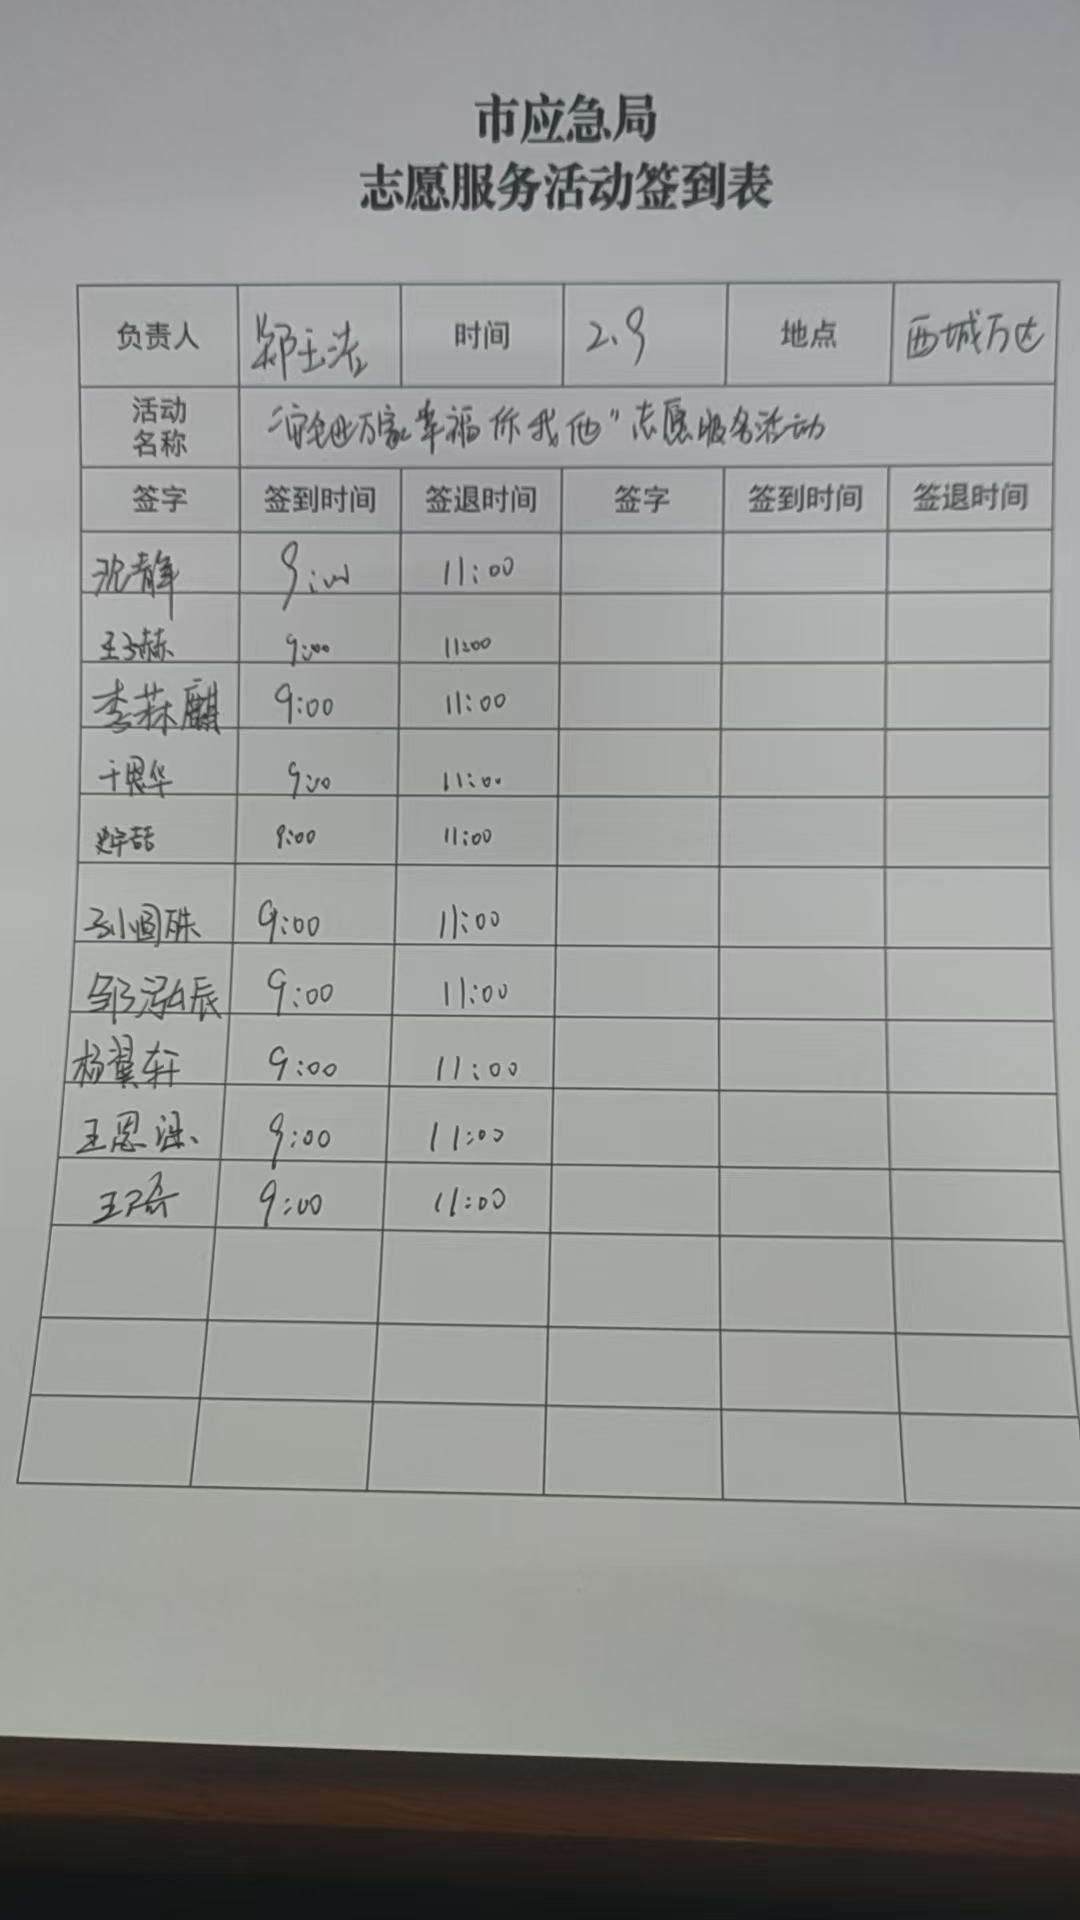 市应急局
志愿服务活动签到表
负责人 郑玉浩 时间 2.9 地点 西城万达
活动名称 “安全进万家 幸福你我他”志愿服务活动
签字 签到时间 签退时间 签字 签到时间 签退时间
沈静 9:00 11:00
王子赫 9:00 11:00
李菻麒 9:00 11:00
于恩华 9:00 11:00
9:00 11:00
孙圆珠 9:00 11:00
邹泓辰 9:00 11:00
杨翼轩 9:00 11:00
王恩 9:00 11:00
王 9:00 11:00